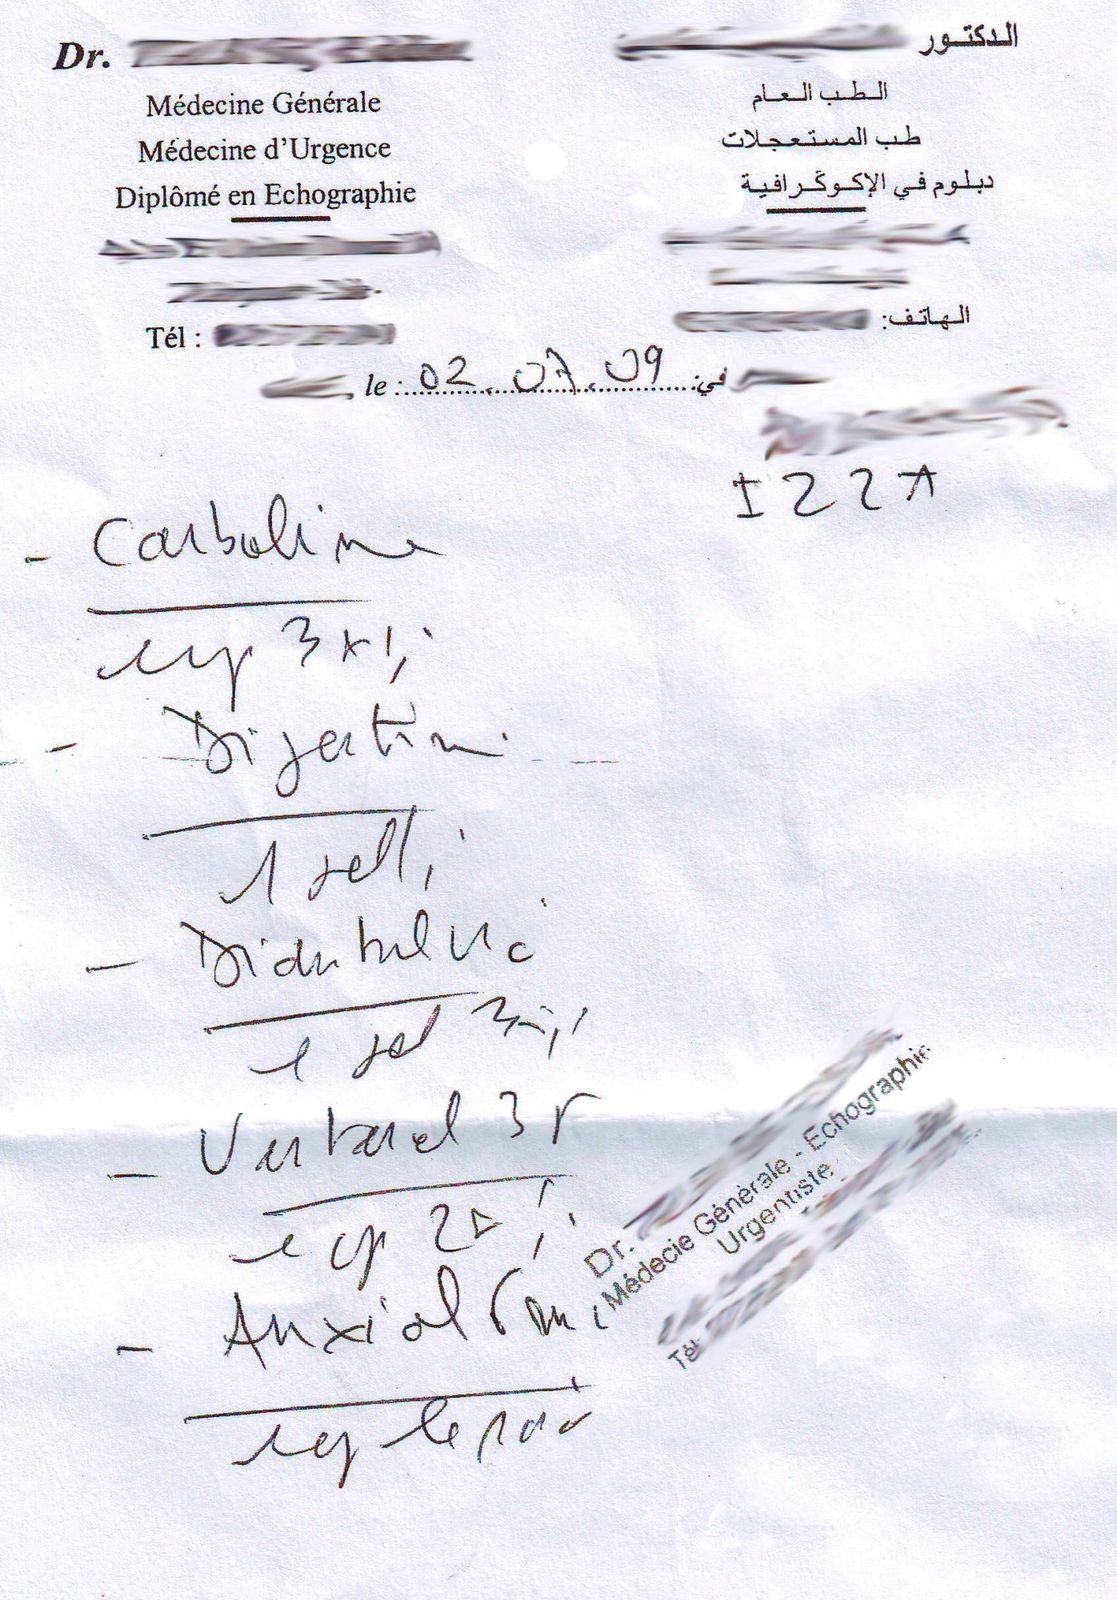 Dr.
Médecine Générale
Médecine d'Urgence
Diplômé en Echographie
Tél :
الدكتور
الطب العام
طب المستعجلات
دبلوم في الإكوكرافية
الهاتف:
le : 02.07.09 في:
- Carboline
1 cp 3 x 1j
- Digestine
1 / j
-
1 3 / j
- Vastarel 35
1 cp 2x / j
- Anxiol 6 mg
1 cp le soir
Dr.
Médecie Générale - Echographie
Urgentiste
Tél